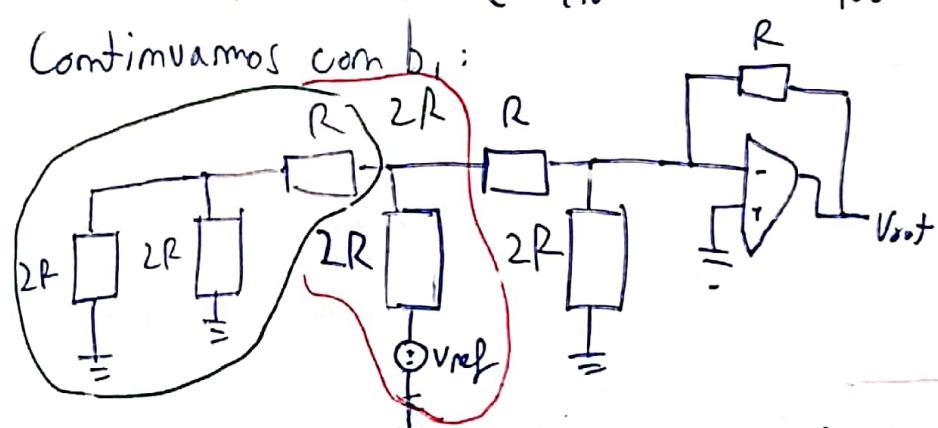 Continuamos com b₁:
R
R 2R R
2R 2R 2R 2R
- 
+
Vout
Vref